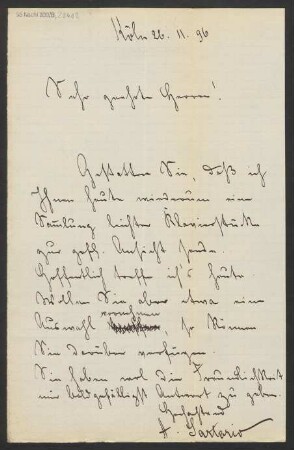 Köln 26. 11. 96
Sehr geehrte Herren!
Gestatten Sie, daß ich
Ihnen heute wiederum eine
Samlung leichter Klavierstücke
zur gefl. Ansicht sende.
Hoffentlich treffe ich's heute.
Wollen Sie aber etwa eine
Auswahl vornehmen, so können
Sie darüber verfügen.
Sie haben wol die Freundlichkeit
mir baldgefälligst Antwort zu geben.
Hochachtend
A. Sartorio